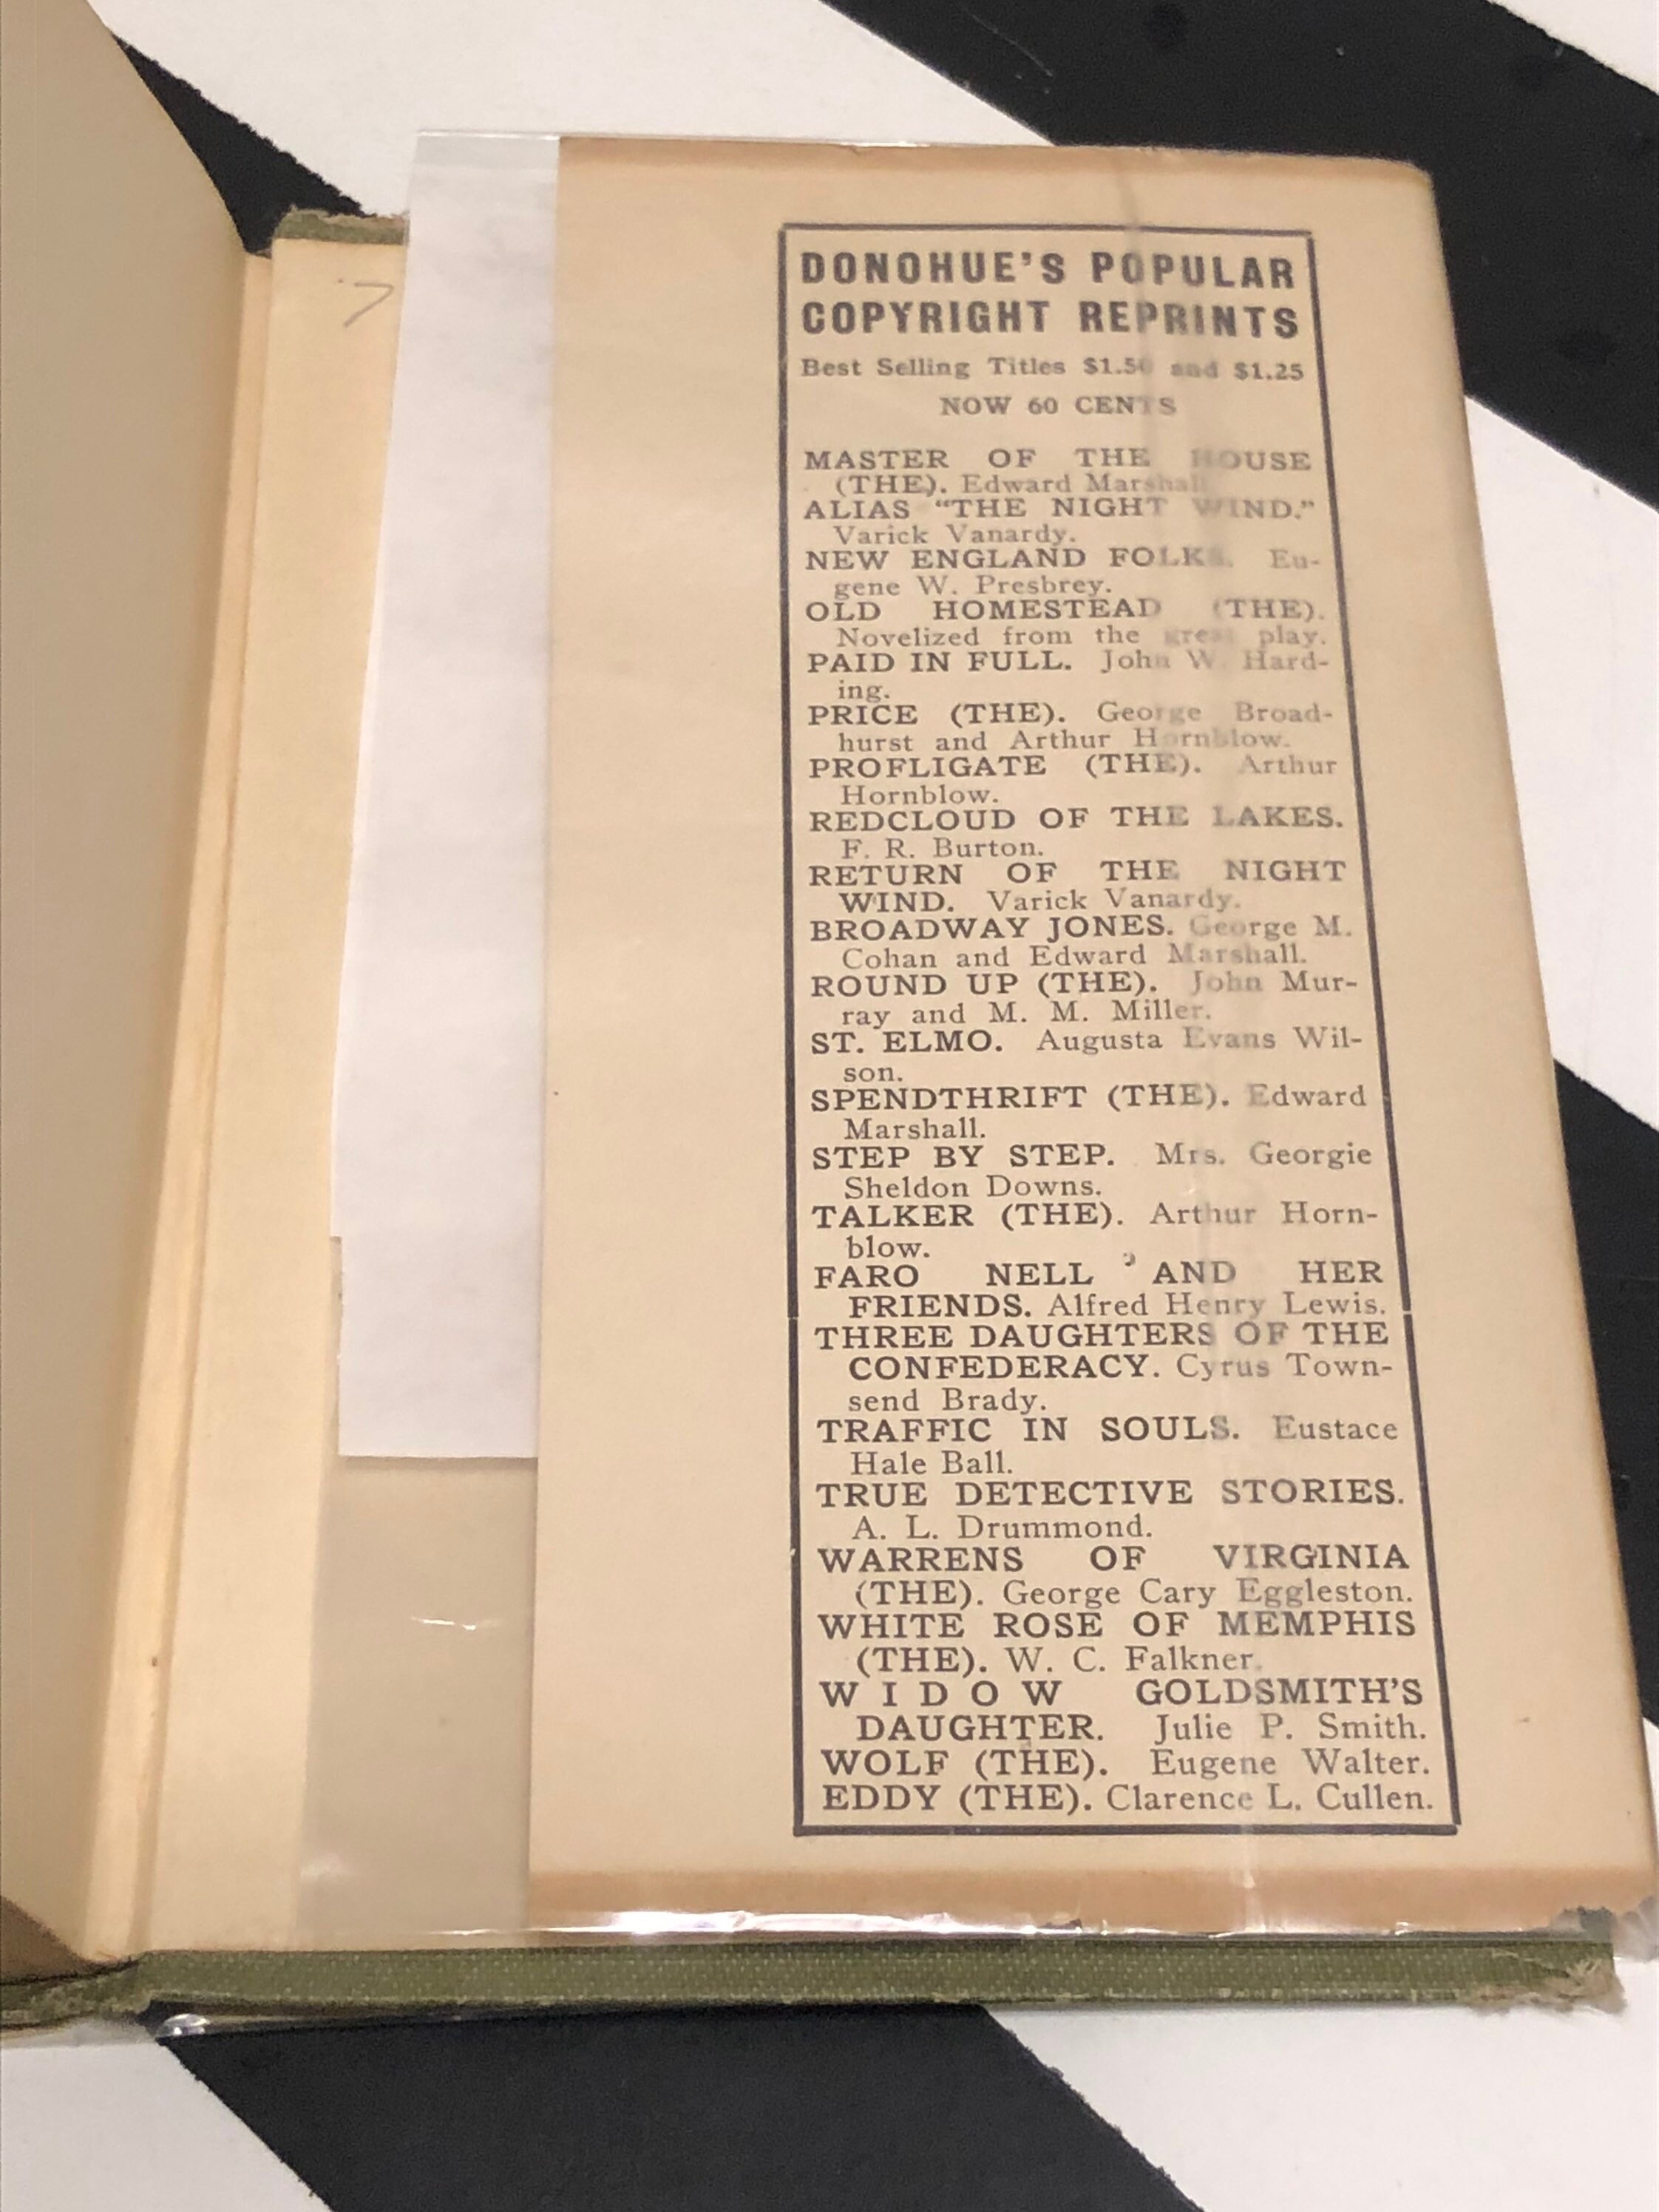 7
DONOHUE'S POPULAR
COPYRIGHT REPRINTS
Best Selling Titles $1.50 and $1.25
NOW 60 CENTS
MASTER OF THE HOUSE
(THE). Edward Marshall
ALIAS "THE NIGHT WIND."
Varick Vanardy.
NEW ENGLAND FOLKS. Eu-
gene W. Presbrey.
OLD HOMESTEAD (THE).
Novelized from the great play.
PAID IN FULL. John W. Hard-
ing.
PRICE (THE). George Broad-
hurst and Arthur Hornblow.
PROFLIGATE (THE). Arthur
Hornblow.
REDCLOUD OF THE LAKES.
F. R. Burton.
RETURN OF THE NIGHT
WIND. Varick Vanardy.
BROADWAY JONES. George M.
Cohan and Edward Marshall.
ROUND UP (THE). John Mur-
ray and M. M. Miller.
ST. ELMO. Augusta Evans Wil-
son.
SPENDTHRIFT (THE). Edward
Marshall.
STEP BY STEP. Mrs. Georgie
Sheldon Downs.
TALKER (THE). Arthur Horn-
blow.
FARO NELL AND HER
FRIENDS. Alfred Henry Lewis.
THREE DAUGHTERS OF THE
CONFEDERACY. Cyrus Town-
send Brady.
TRAFFIC IN SOULS. Eustace
Hale Ball.
TRUE DETECTIVE STORIES.
A. L. Drummond.
WARRENS OF VIRGINIA
(THE). George Cary Eggleston.
WHITE ROSE OF MEMPHIS
(THE). W. C. Falkner.
WIDOW GOLDSMITH'S
DAUGHTER. Julie P. Smith.
WOLF (THE). Eugene Walter.
EDDY (THE). Clarence L. Cullen.